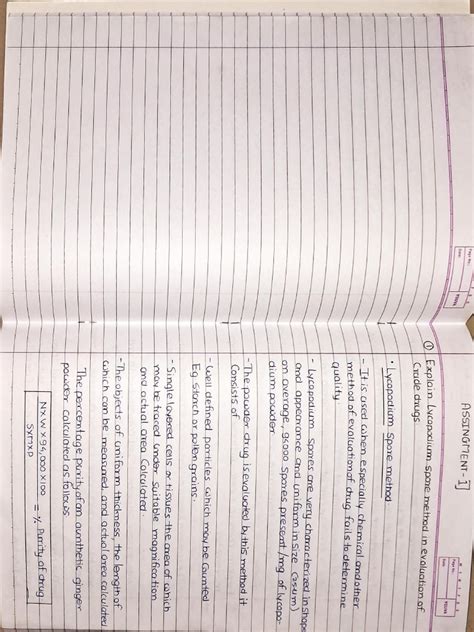 ASSINGMENT-1]
① Explain Lycopodium spore method in evaluation of
Crude drugs
• Lycopodium Spore method
- It is used when especially chemical and other
method of evaluation of drug fails to determine
quality
- Lycopodium Spores are very characterized in shape
and appearance and uniform in Size (25um)
on average, 94000 Spores present/mg of lycopo-
dium powder
- The powder drug is evaluated by this method it
Consists of
- Well defined particles which may be Counted
Eg. starch or pollen grains.
- Single layered cells or tissues the area of which
may be traced under suitable magnification
and actual area Calculated.
- The objects of uniform thickness, the length of
which can be measured and actual area calculated
The percentage purity of an aunthetic ginger
powder calculated as follows
NXWX94,000X100 = % Purity of drug
SXMXP